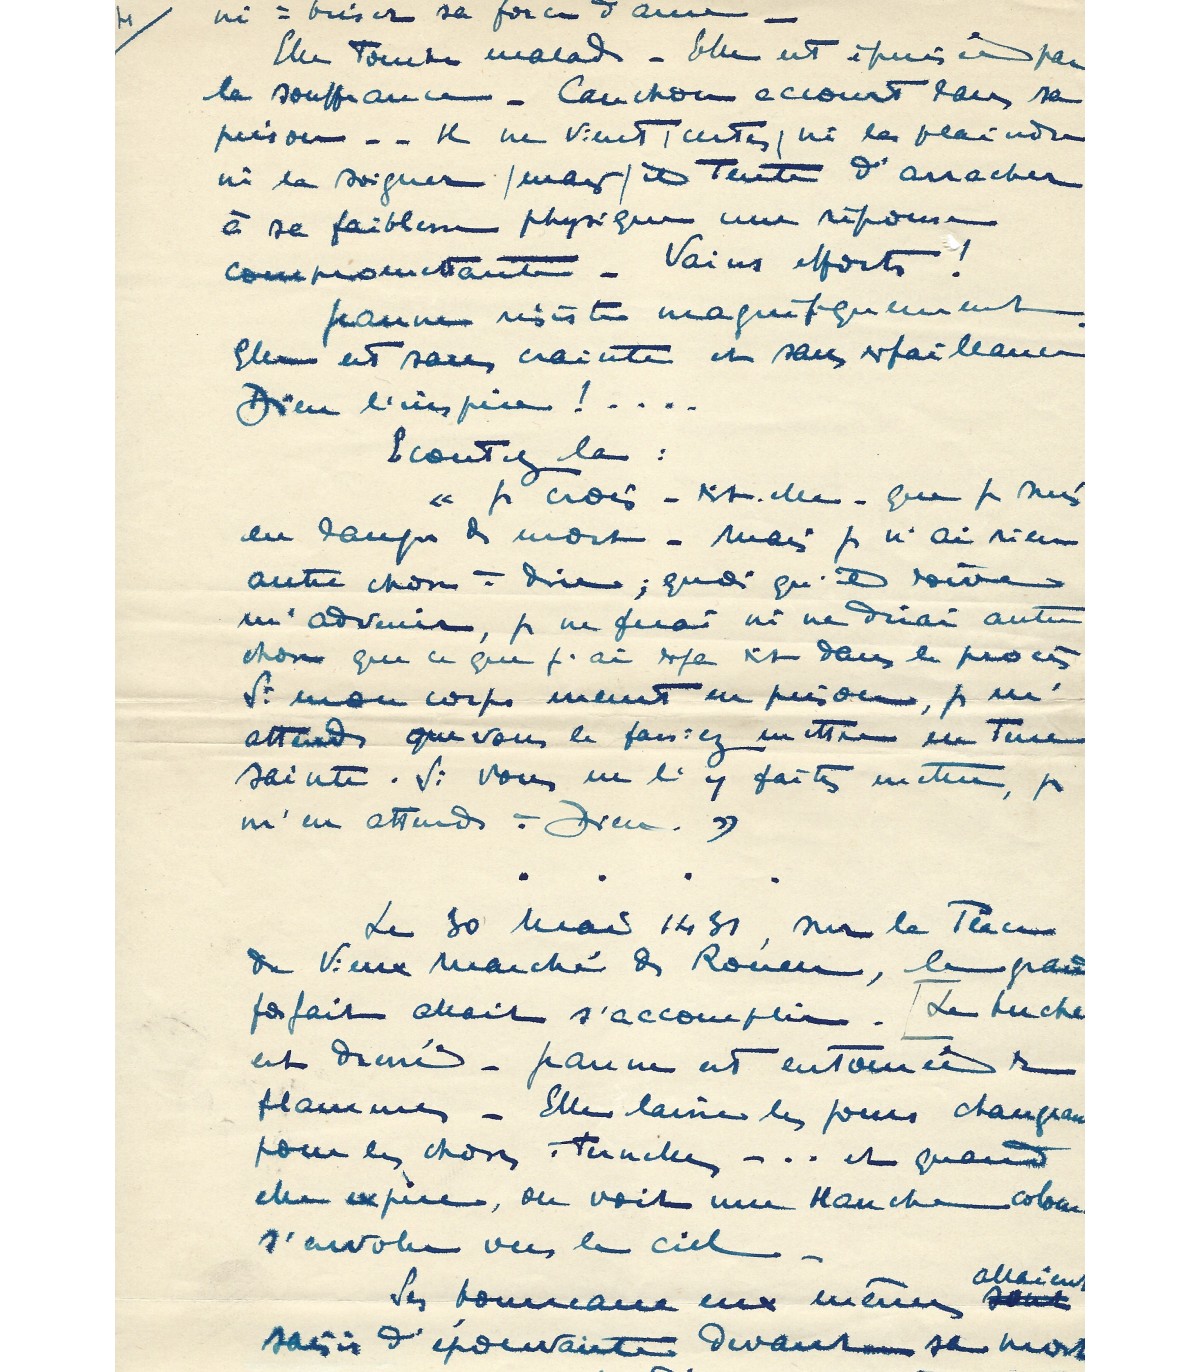 ni à briser sa force d'âme –
Elle tombe malade – Elle est épuisée par
la souffrance – Cauchon accourt dans sa
prison – – Il ne vient, certes, ni la plaindre
ni la soigner, mais, il tente d'arracher
à sa faiblesse physique une réponse
compromettante – Vains efforts !
Jeanne résiste magnifiquement.
Elle est sans crainte et sans défaillance
Dieu l'inspire ! . . . .
Ecoutez la :
« Je crois – dit-elle – que je suis
en danger de mort – Mais je n'ai rien
autre chose à dire ; quoi qu'il doive
m'advenir, je ne ferai ni ne dirai autre
chose que ce que j'ai déjà dit dans le procès
Si mon corps meurt en prison, je m'
attends que vous le fassiez mettre en terre
sainte. Si vous ne l'y faites mettre, je
m'en attends à Dieu. »
. . . .
Le 30 Mai 1431, sur la Place
du Vieux Marché de Rouen, le grand
forfait allait s'accomplir. [Le bucher
est dressé – Jeanne est entourée de
flammes – Elle laisse les jours changeants
pour les choses éternelles – . . . et quand
elle expire, on voit une blanche colombe
s'envoler vers le ciel –
Ses bourreaux eux mêmes allaient
saisis d'épouvante devant sa mort